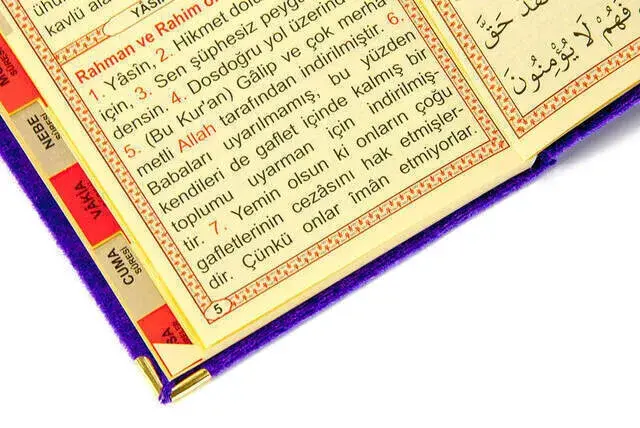 kavlü
YÂSİN
Rahman ve Rahim
1. Yâsîn, 2. Hikmet
için, 3. Sen şüphesiz
densin. 4. Dosdoğru yol üzerinde
5. (Bu Kur'an) Gâlip ve çok merha-
metli Allah tarafından indirilmiştir. 6.
Babaları uyarılmamış, bu yüzden
kendileri de gaflet içinde kalmış bir
toplumu uyarman için indirilmiş-
tir. 7. Yemin olsun ki onların çoğu
gafletlerinin cezâsını hak etmişler-
dir. Çünkü onlar îmân etmiyorlar.
5
حَقَّ
فَهُمْ لَا يُؤْمِنُونَ
SÛRESİ
NEBE
SÛRESİ
VÂKIA
CUMA
SÛRESİ